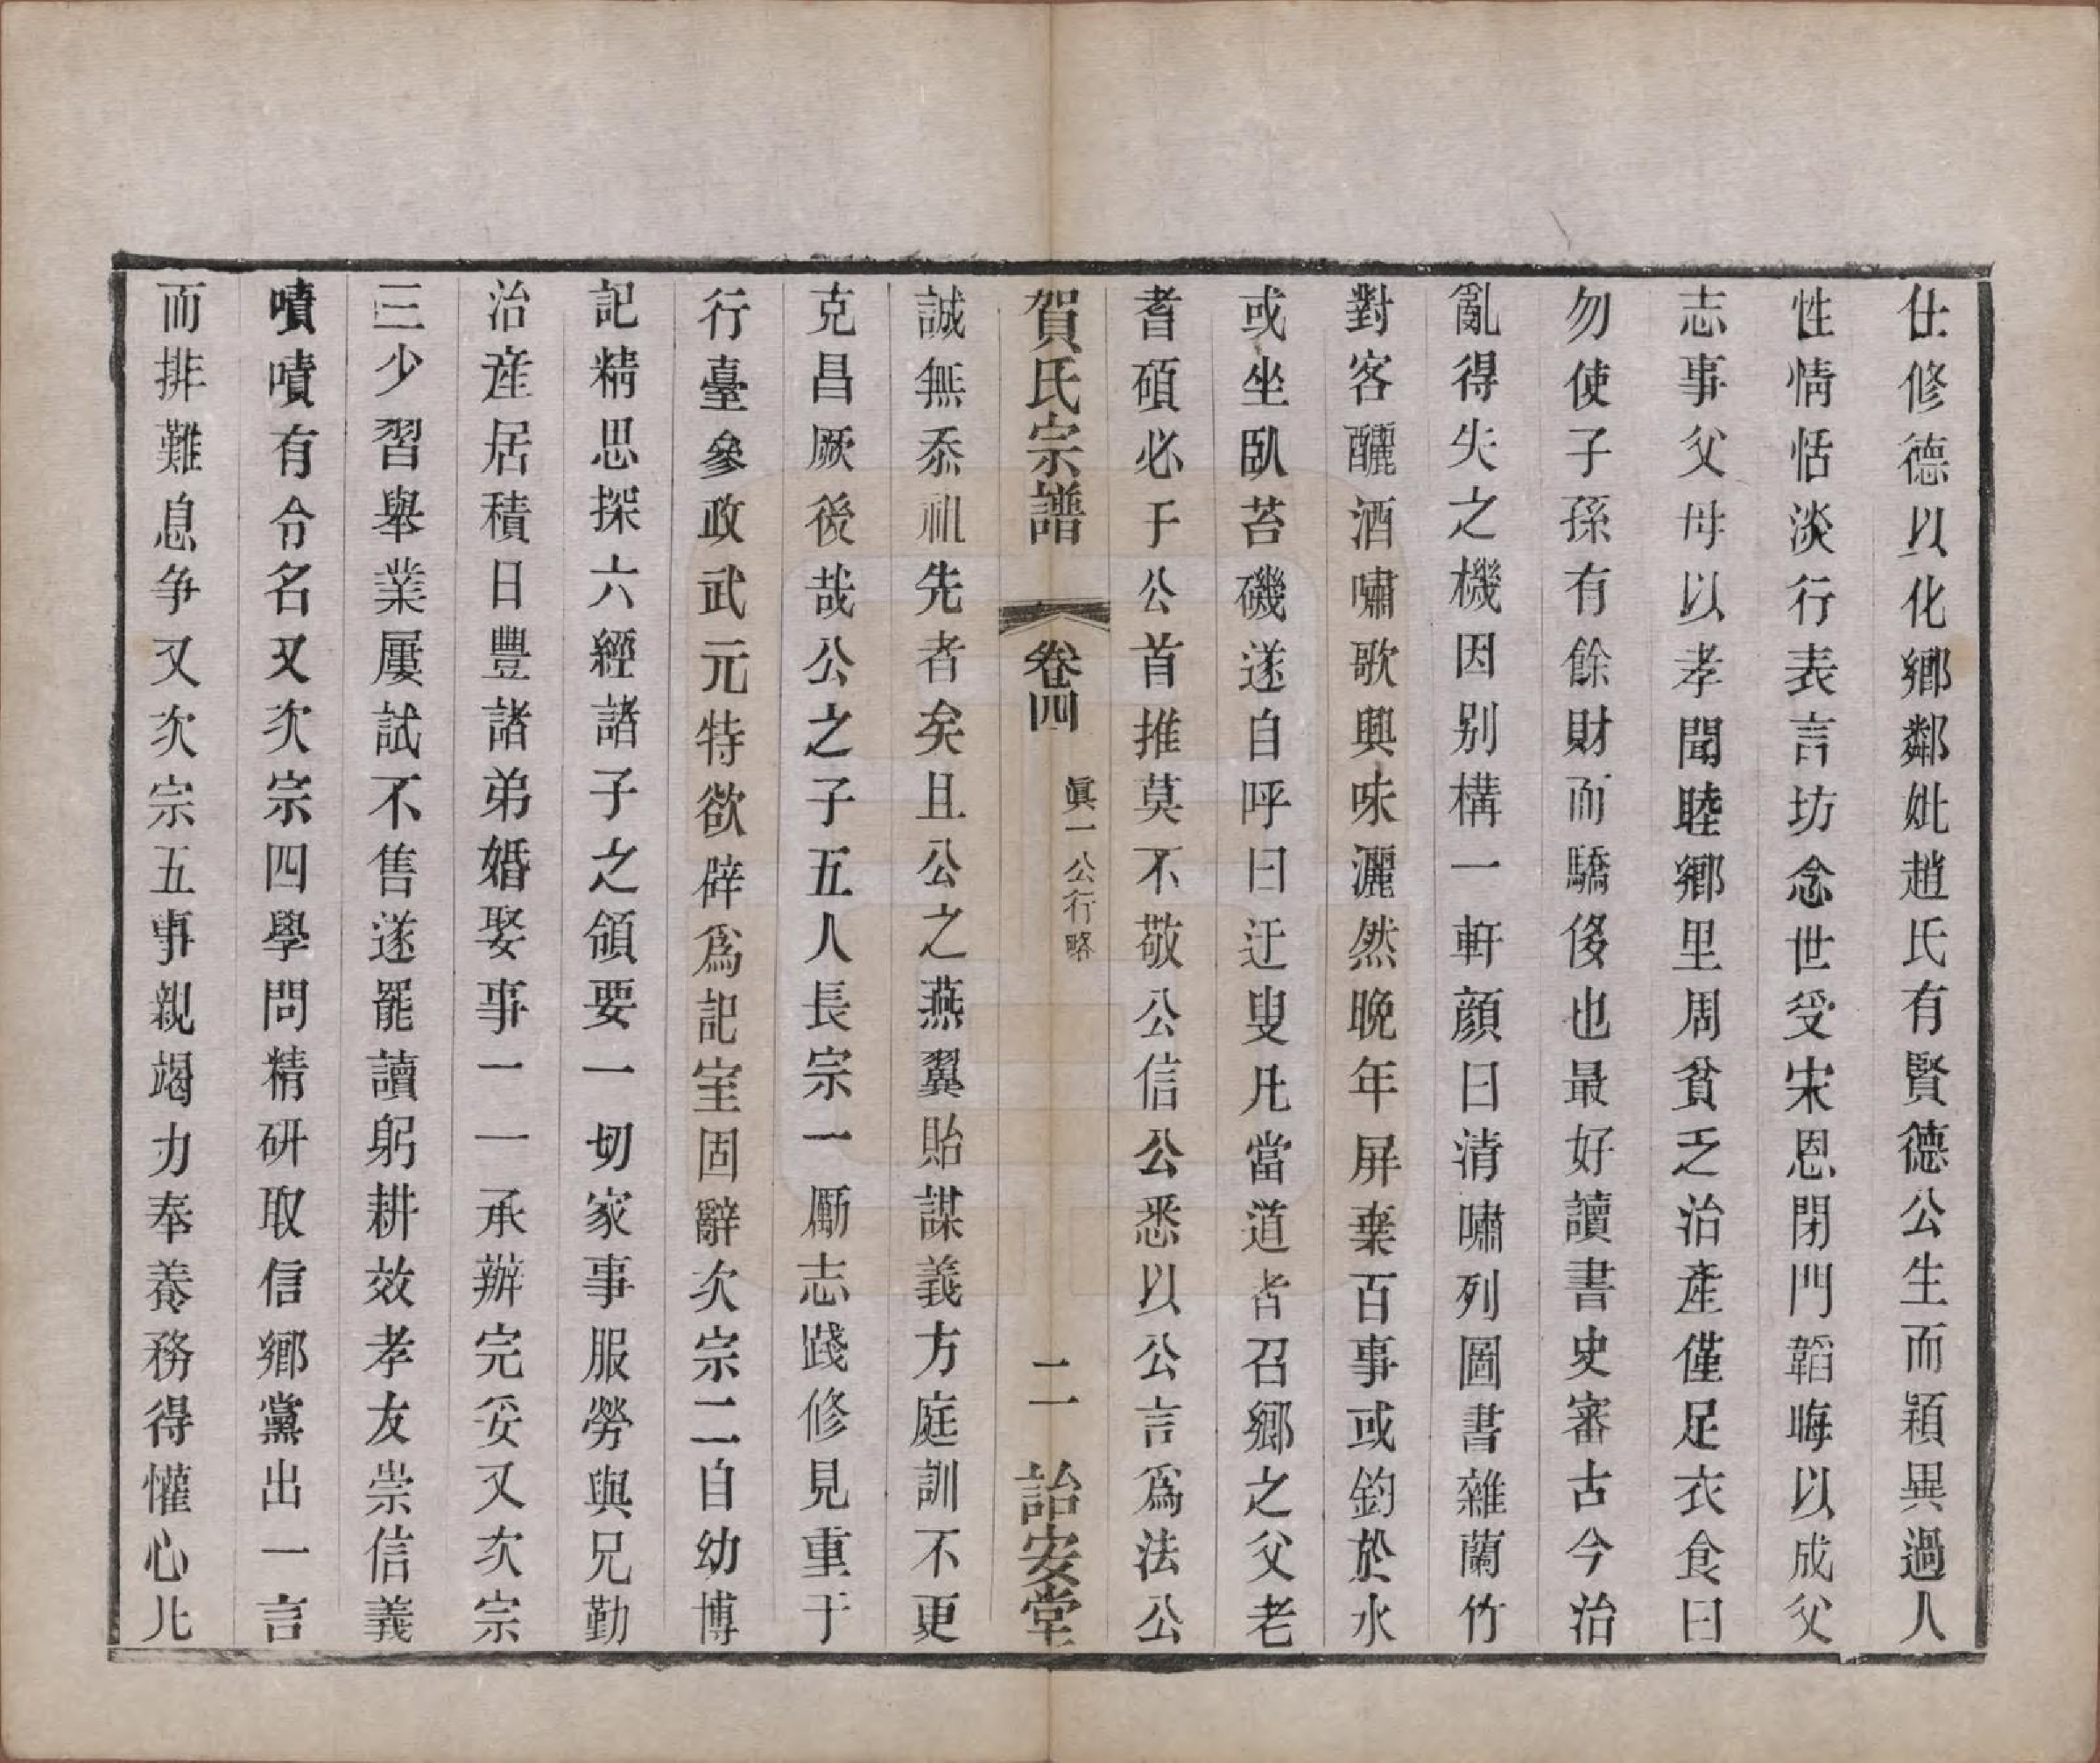 仕修德以化鄉鄰妣趙氏有賢德公生而穎異過人
性情恬淡行表言坊念世受宋恩閉門韜晦以成父
志事父母以孝聞睦鄉里周貧乏治產僅足衣食曰
勿使子孫有餘財而驕侈也最好讀書史審古今治
亂得失之機因别構一軒顔曰清嘯列圖書雜蘭竹
對客釃酒嘯歌興味灑然晩年屏棄百事或釣於水
或坐臥苔磯遂自呼曰迂叟凡當道者召鄉之父老
耆碩必于公首推莫不敬公信公悉以公言爲法公
賀氏宗譜 卷四 眞一公行略 二 詒安堂
誠無忝祖先者矣且公之燕翼貽謀義方庭訓不更
克昌厥後哉公之子五人長宗一勵志踐修見重于
行臺參政武元特欲辟爲記室固辭次宗二自幼博
記精思探六經諸子之領要一切家事服勞與兄勤
治產居積日豐諸弟婚娶事一一承辦完妥又次宗
三少習舉業屢試不售遂罷讀躬耕效孝友崇信義
嘖嘖有令名又次宗四學問精研取信鄉黨出一言
而排難息争又次宗五事親竭力奉養務得懽心凡